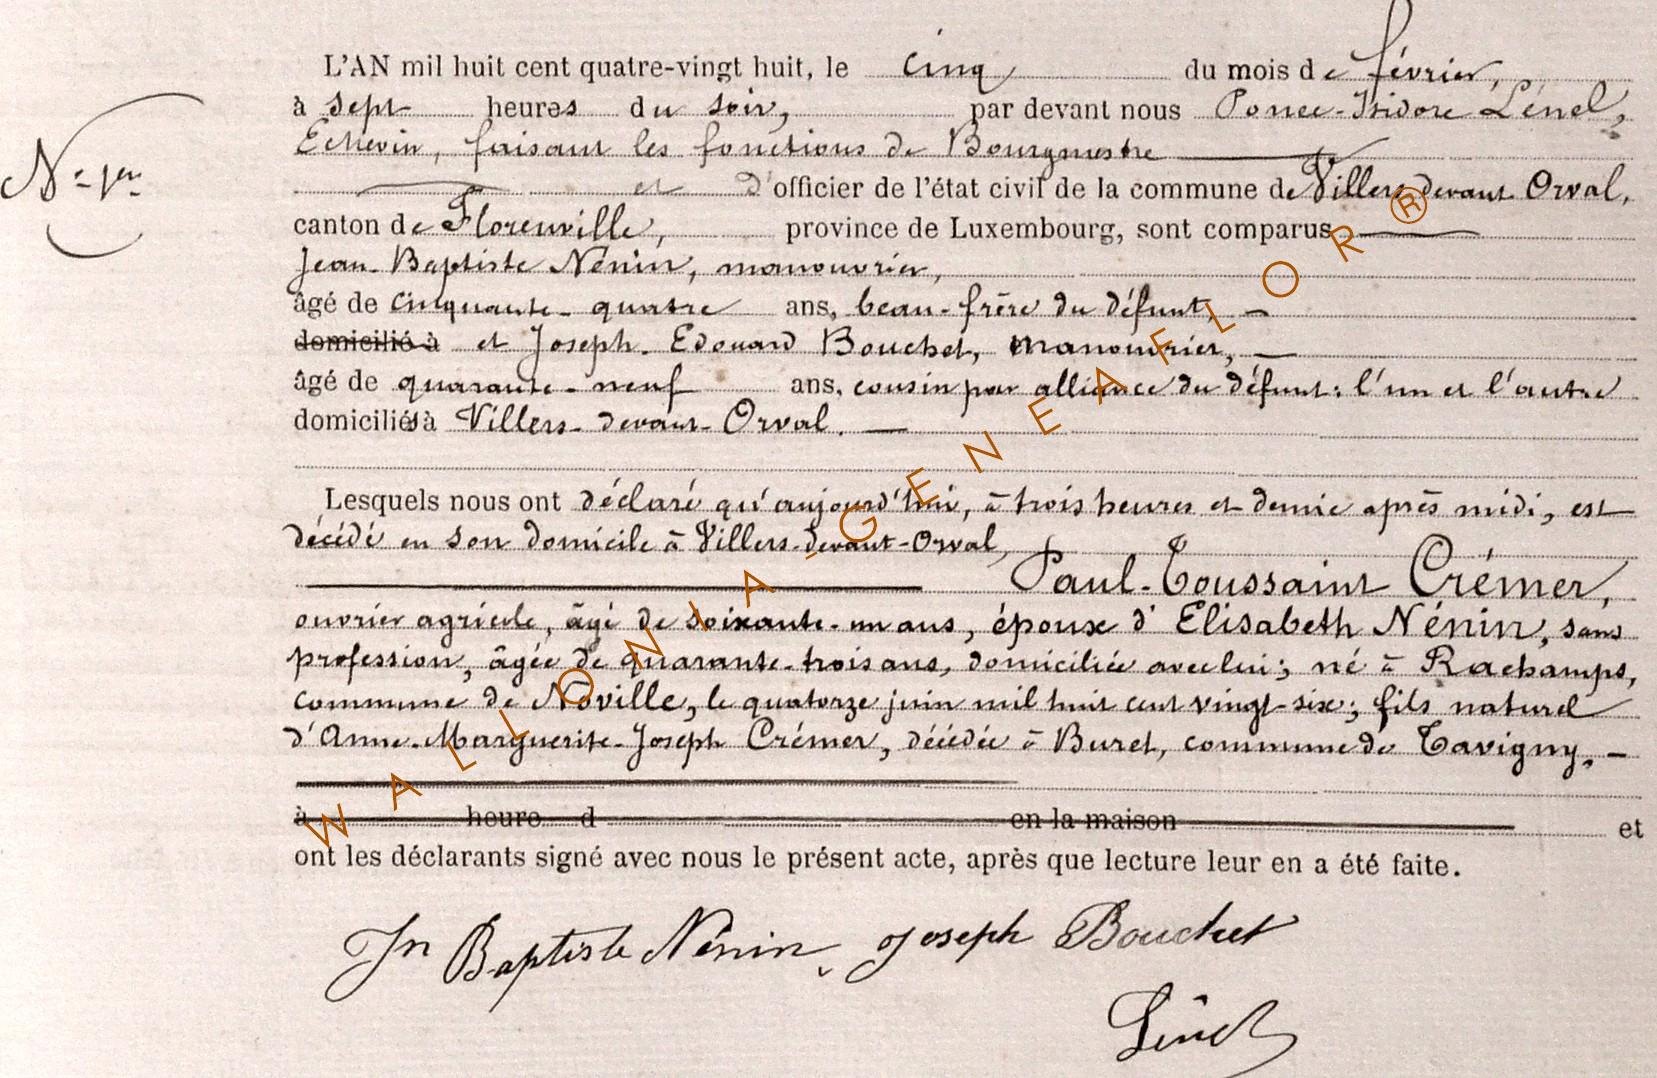 L'AN mil huit cent quatre-vingt huit, le cinq du mois de février,
à sept heures du soir, par devant nous Ponce-Isidore Lénel,
Echevin, faisant les fonctions de Bourgmestre
N.º 1er
et d'officier de l'état civil de la commune de Villers devant Orval,
canton de Florenville, province de Luxembourg, sont comparus
Jean-Baptiste Nénin, manouvrier,
âgé de cinquante-quatre ans, beau-frère du défunt,
domicilié à et Joseph-Edouard Bouchet, manouvrier,
âgé de quarante-neuf ans, cousin par alliance du défunt: l'un et l'autre
domiciliés à Villers-devant-Orval.
Lesquels nous ont déclaré qu'aujourd'hui, à trois heures et demie après midi, est
décédé en son domicile à Villers-devant-Orval,
Paul-Toussaint Crémer,
ouvrier agricole, âgé de soixante-un ans, époux d'Elisabeth Nénin, sans
profession, âgée de quarante-trois ans, domiciliée avec lui; né à Rachamps,
commune de Noville, le quatorze juin mil huit cent vingt-six; fils naturel
d'Anne-Marguerite-Joseph Crémer, décédée à Buret, commune de Tavigny.
à heure d en la maison et
ont les déclarants signé avec nous le présent acte, après que lecture leur en a été faite.
Jn Baptiste Nénin, Joseph Bouchet
Lénel
WALLONIA-GENEAFLOR®